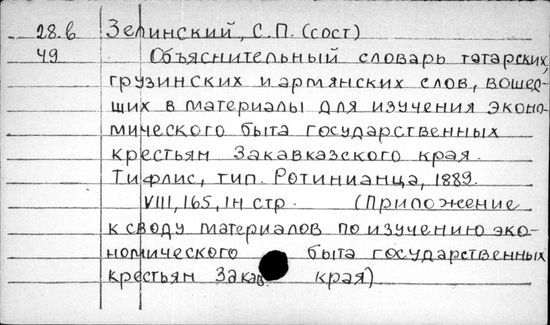 28.б Зелинский, С.П. (сост)
49 Объяснительный словарь татарских,
грузинских и армянских слов, вошед-
ших в материалы для изучения эконо-
мического быта государственных
крестьян Закавказского края.
Тифлис, тип. Ротинианца, 1889.
VIII, 165, 1н стр. (Приложение
к своду материалов по изучению эко-
номического быта государственных
крестьян Закав. края)